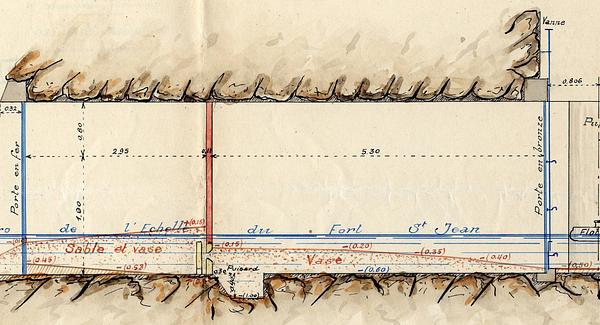 Vanne
0.806
0.32
0.80
2.95
5.30
Porte en fer
Porte en bronze
1.90
(0.15)
de l'Echelle du Fort St Jean
Sable et vase
-(0.15)
-(0.20)
(0.35)
-(0.40)
Vase
-(0.45)
-(0.53)
-(0.60)
-(0.50)
Puisard
-(1.00)